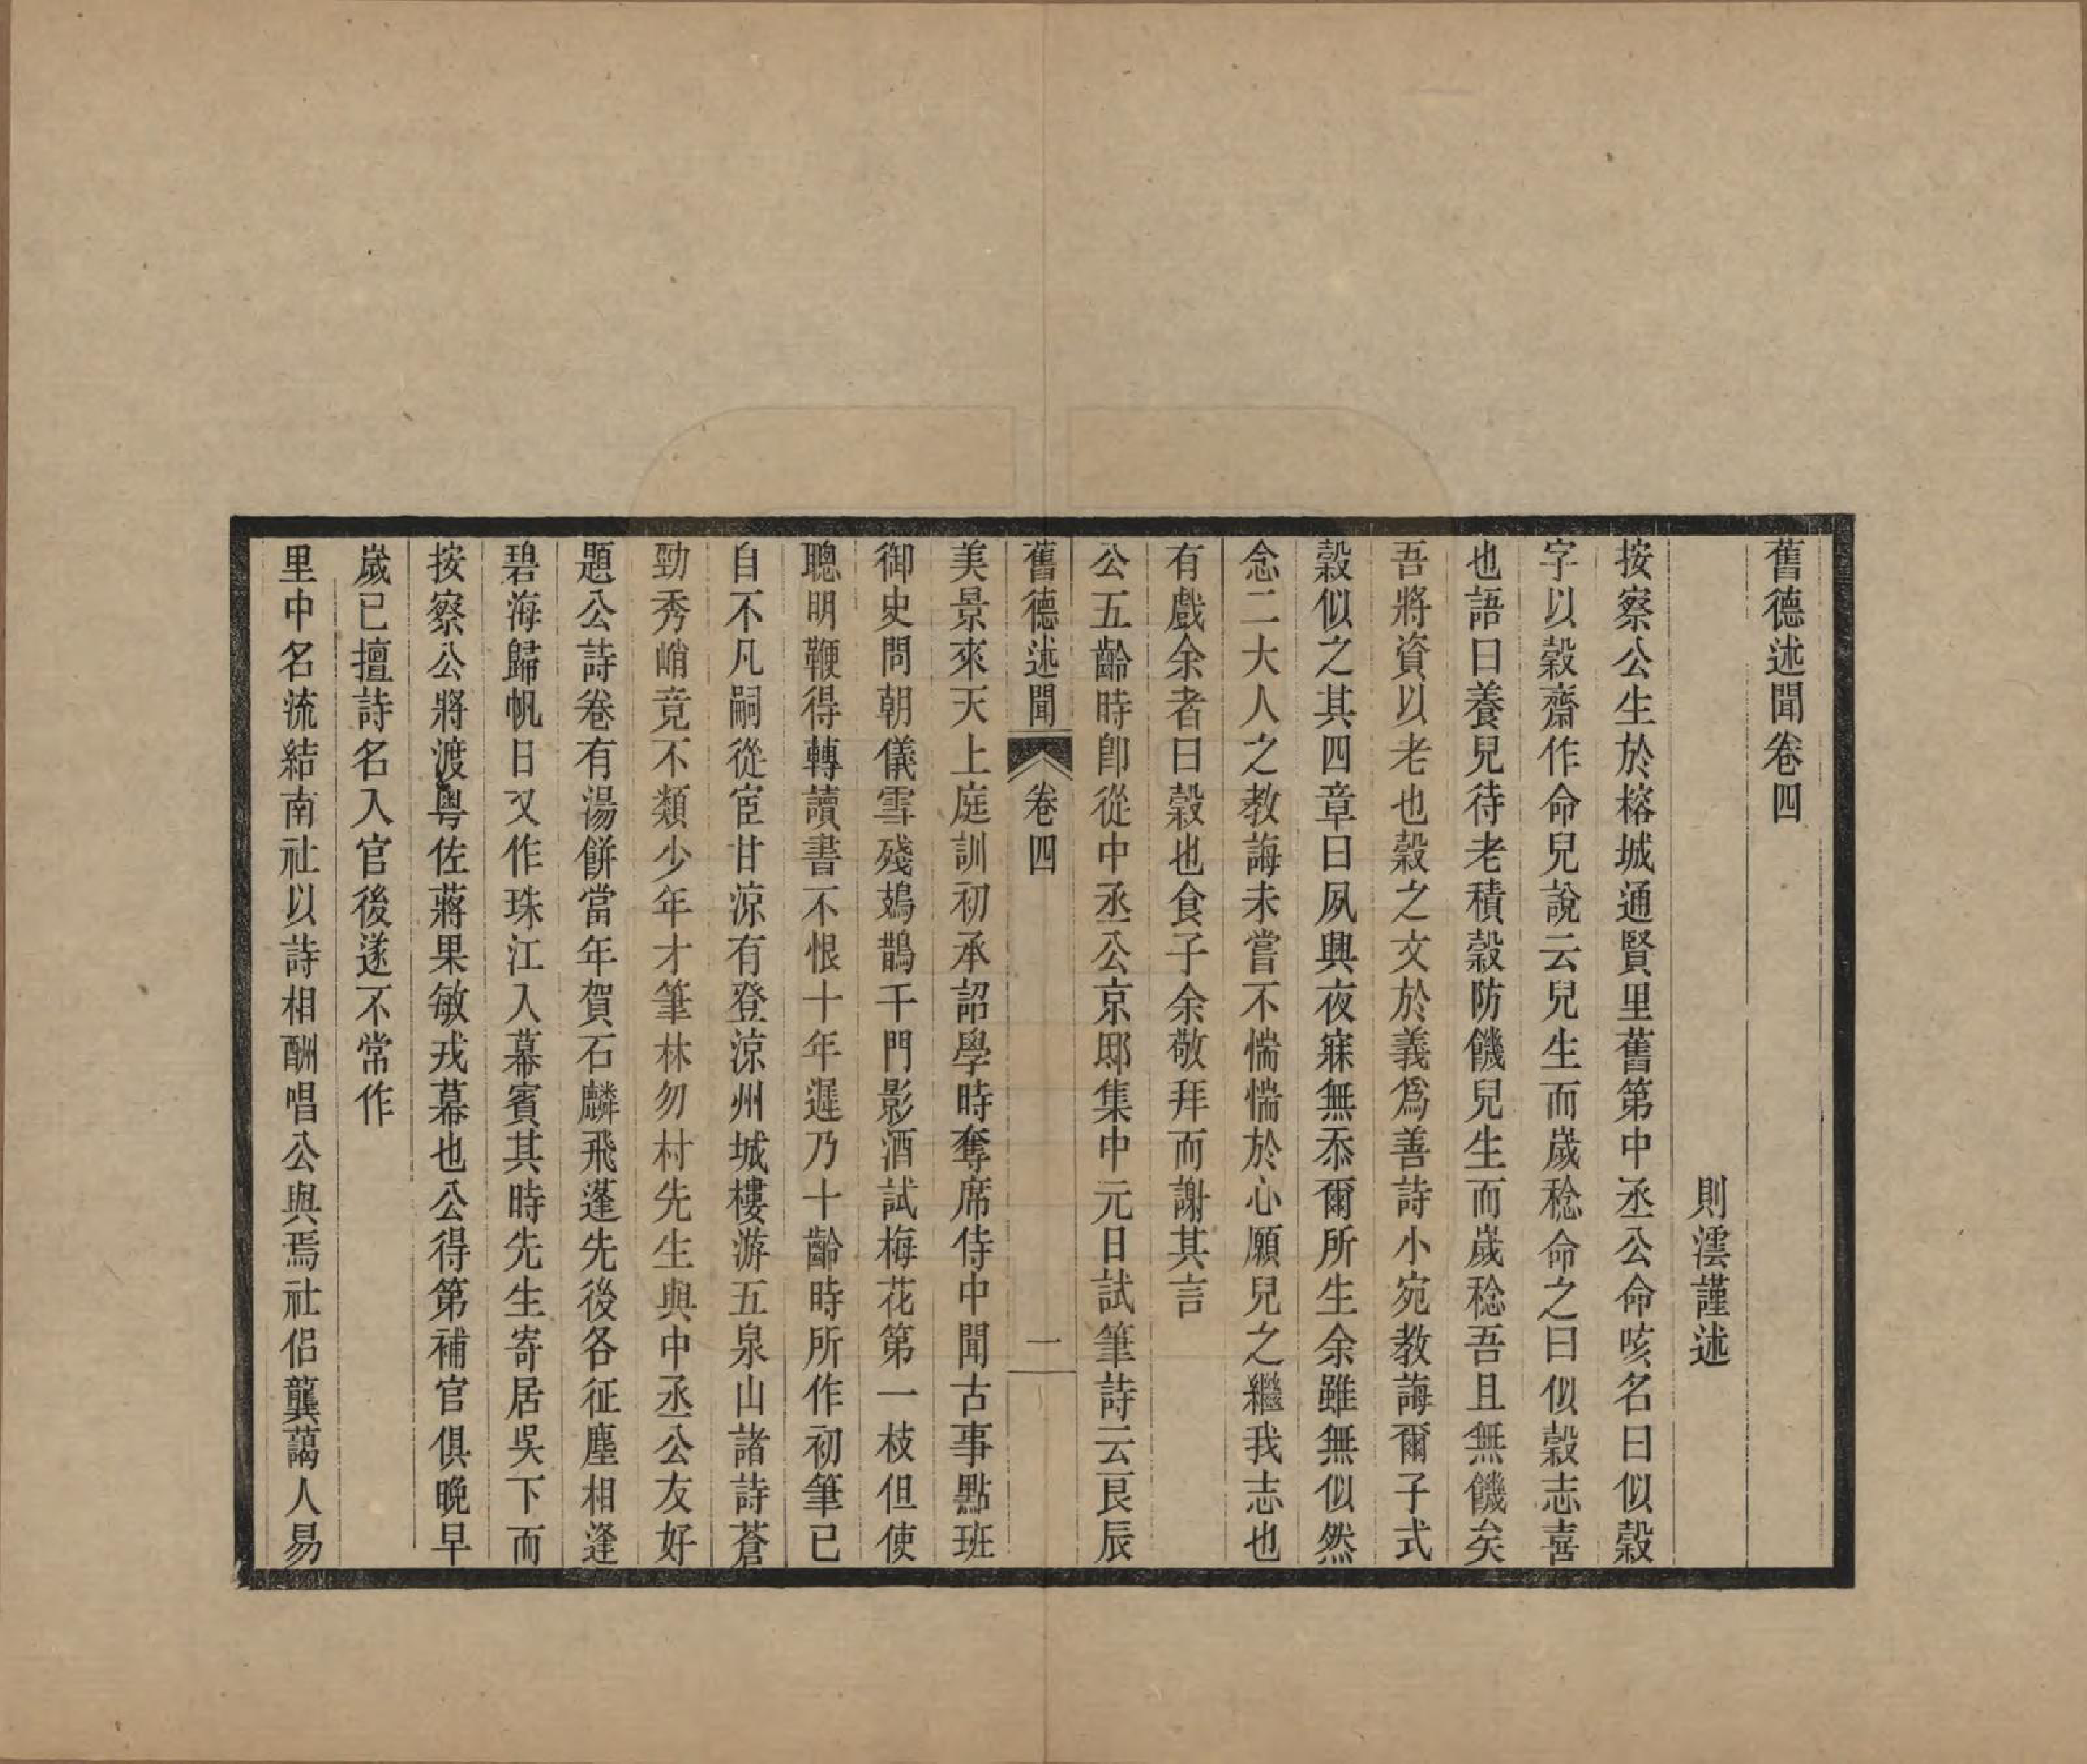 舊德述聞卷四
則澐謹述
按察公生於榕城通賢里舊第中丞公命咳名曰似穀
字以穀齋作命兒說云兒生而歲稔命之曰似穀志喜
也語曰養兒待老積穀防饑兒生而歲稔吾且無饑矣
吾將資以老也穀之文於義爲善詩小宛教誨爾子式
穀似之其四章曰夙興夜寐無忝爾所生余雖無似然
念二大人之教誨未嘗不惴惴於心願兒之繼我志也
有戲余者曰穀也食子余敬拜而謝其言
公五齡時卽從中丞公京邸集中元日試筆詩云良辰
舊德述聞 卷四 一
美景來天上庭訓初承詔學時奪席侍中聞古事點班
御史問朝儀雪殘鳷鵲千門影酒試梅花第一枝但使
聰明鞭得轉讀書不恨十年遲乃十齡時所作初筆已
自不凡嗣從宦甘涼有登涼州城樓游五泉山諸詩蒼
勁秀峭竟不類少年才筆林勿村先生與中丞公友好
題公詩卷有湯餅當年賀石麟飛蓬先後各征塵相逢
碧海歸帆日又作珠江入幕賓其時先生寄居吳下而
按察公將渡粤佐蔣果敏戎幕也公得第補官俱晚早
歲已擅詩名入官後遂不常作
里中名流結南社以詩相酬唱公與焉社侶龔藹人易